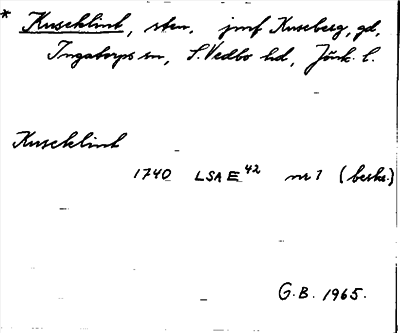 * Kuseklint, sten, jmf Kuseberg, gd,
Ingatorps sn, S. Vedbo hd, Jönk. l.
Kuseklint
1740 LSA E 42 nr 1 (beskr.)
G.B. 1965.